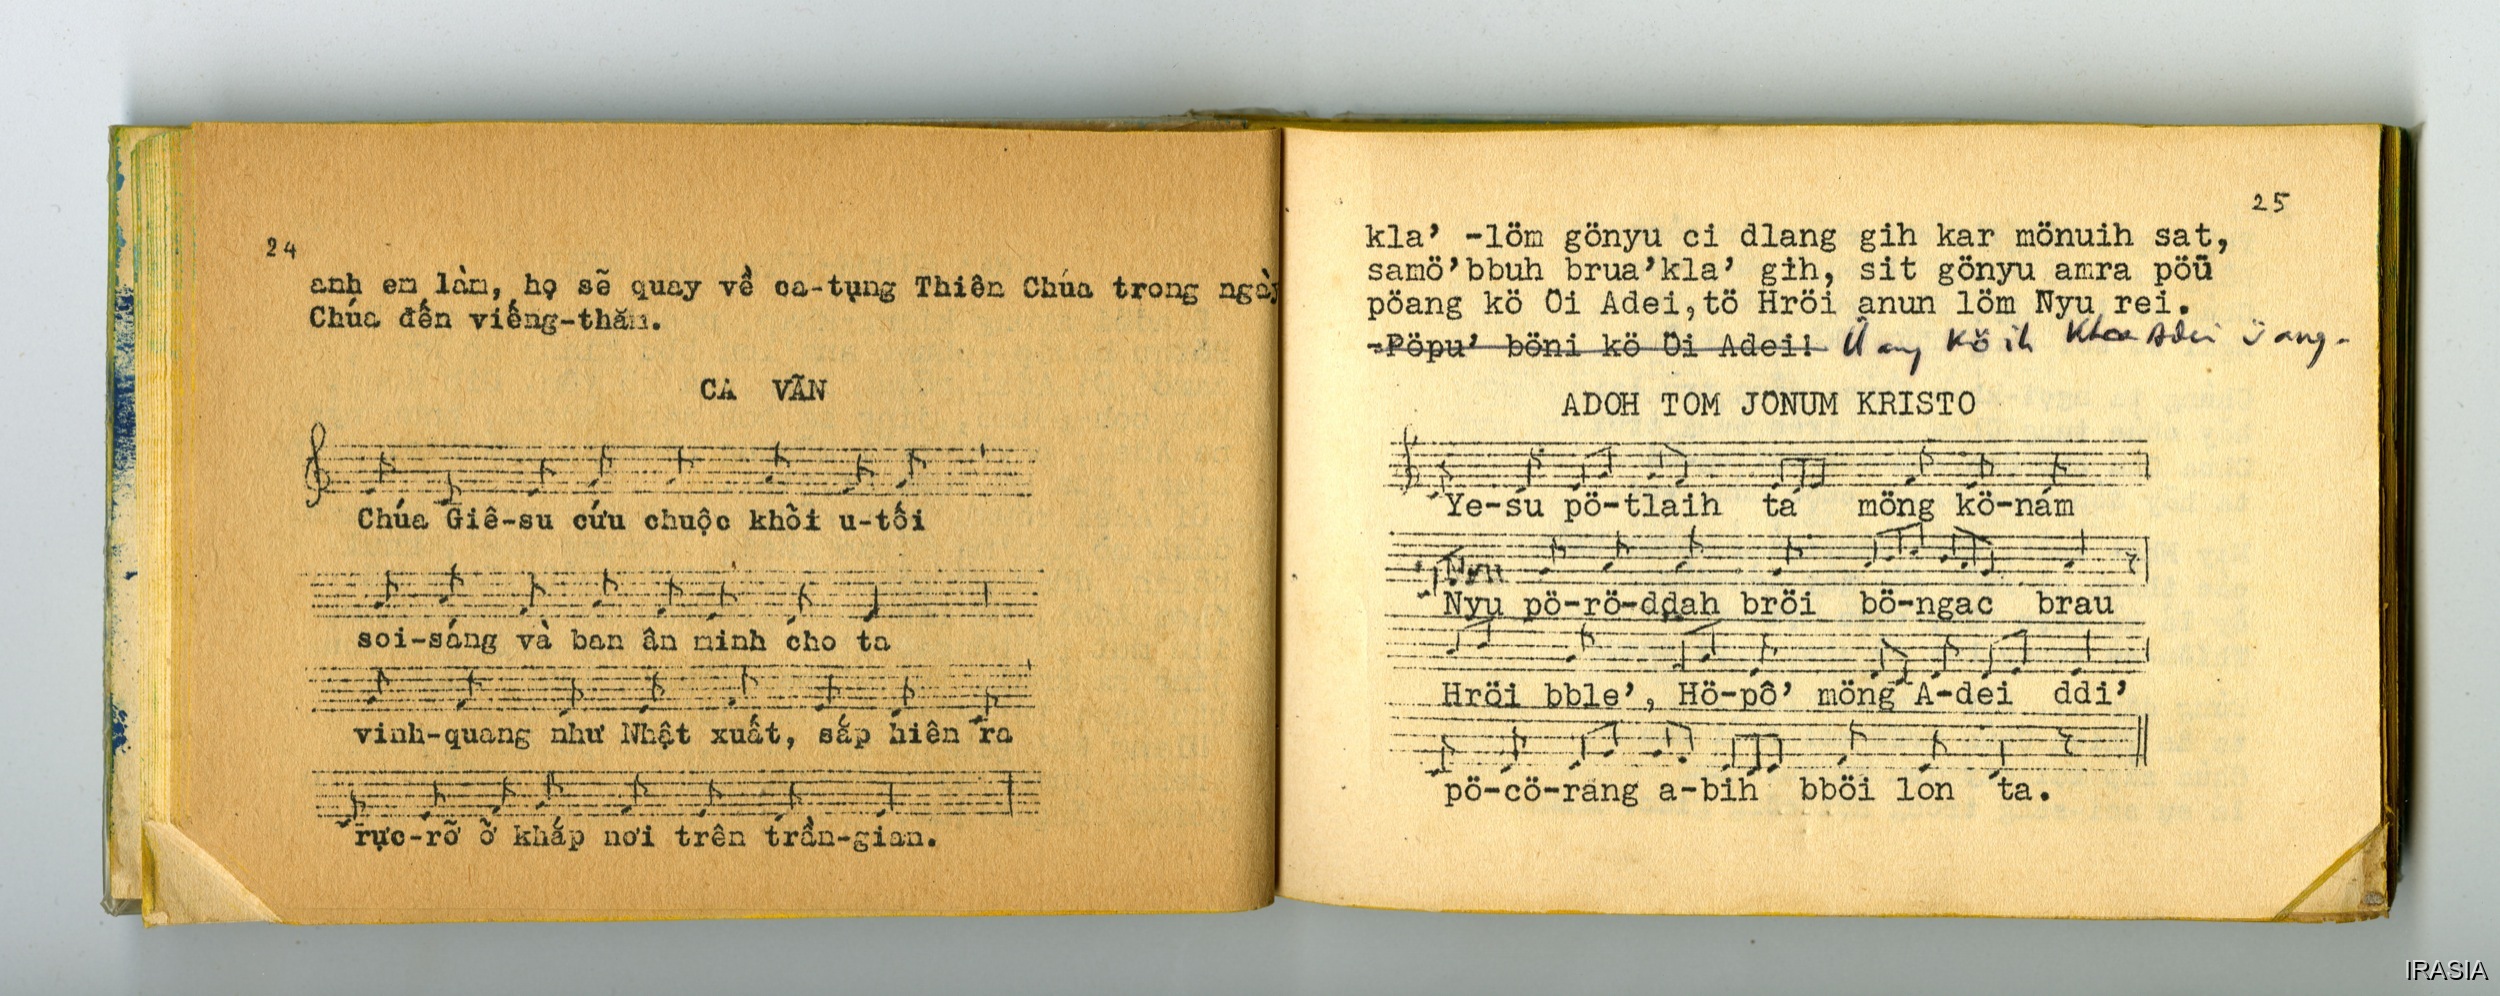 24
anh em làm, họ sẽ quay về ca-tụng Thiên Chúa trong ngày
Chúa đến viếng-thăm.
CA VÃN
Chúa Giê-su cứu chuộc khỏi u-tối
soi-sáng và ban ân minh cho ta
vinh-quang như Nhật xuất, sắp hiên ra
rực-rỡ ở khắp nơi trên trần-gian.
25
kla' -löm gönyu ci dlang gih kar mönuih sat,
samö'bbuh brua'kla' gih, sit gönyu amra pöü
pöang kö Öi Adei,tö Hröi anun löm Ñyu rei.
-Pöpu' böni kö Öi Adei! kö ih Adei
ADOH TOM JÖNUM KRISTO
Ye-su pö-tlaih ta möng kö-nám
Nyu
Nyu pö-rö-ddah bröi bö-ngac brau
Hröi bble', Hö-pô' möng A-dei ddi'
pö-cö-rang a-bih bböi lon ta.
IRASIA